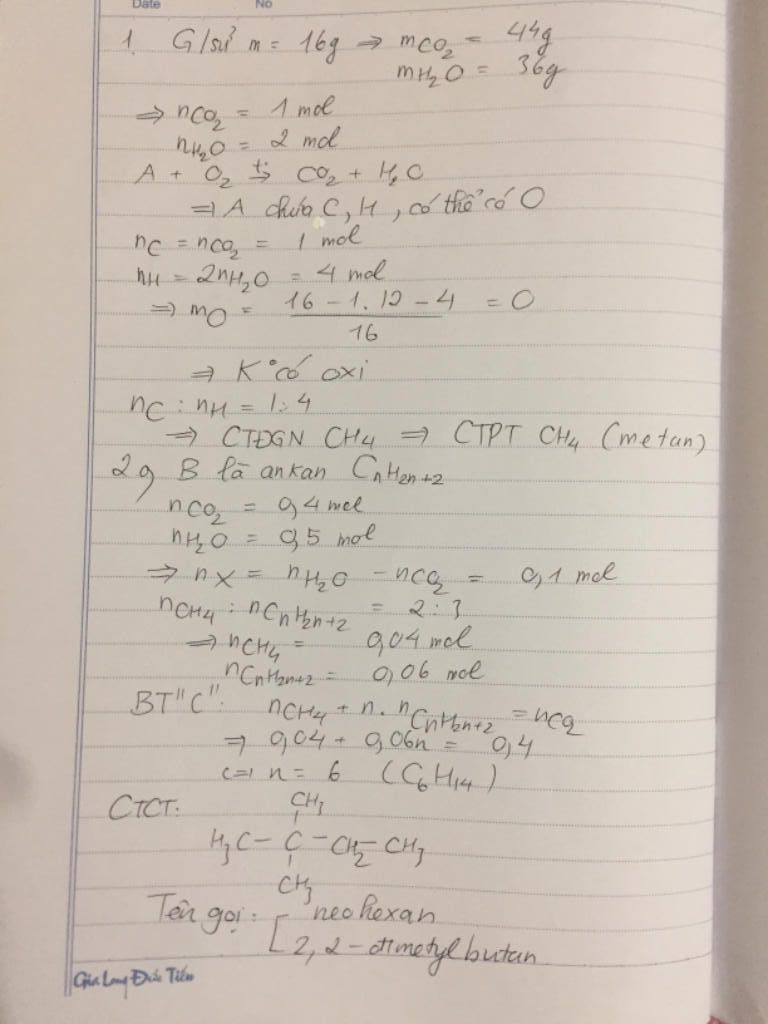 Date No
1. G/sử m = 16g ⇒ mCO2 = 44g
mH2O = 36g
⇒ nCO2 = 1 mol
nH2O = 2 mol
A + O2 t°→ CO2 + H2O
⇒ A chứa C, H, có thể có O
nC = nCO2 = 1 mol
nH = 2nH2O = 4 mol
⇒ mO = (16 - 1.12 - 4)/16 = 0
⇒ K° có oxi
nC : nH = 1:4
⇒ CTĐGN CH4 ⇒ CTPT CH4 (metan)
2g B là ankan CnH2n+2
nCO2 = 0,4 mol
nH2O = 0,5 mol
⇒ nX = nH2O - nCO2 = 0,1 mol
nCH4 : nCnH2n+2 = 2:3
⇒ nCH4 = 0,04 mol
nCnH2n+2 = 0,06 mol
BT"C": nCH4 + n. nCnH2n+2 = nCO2
⇒ 0,04 + 0,06n = 0,4
⇔ n = 6 (C6H14)
CTCT: CH3
H3C - C - CH2 - CH3
CH3
Tên gọi: [ neohexan
2,2-đimetylbutan
Gia Long Đức Tiến